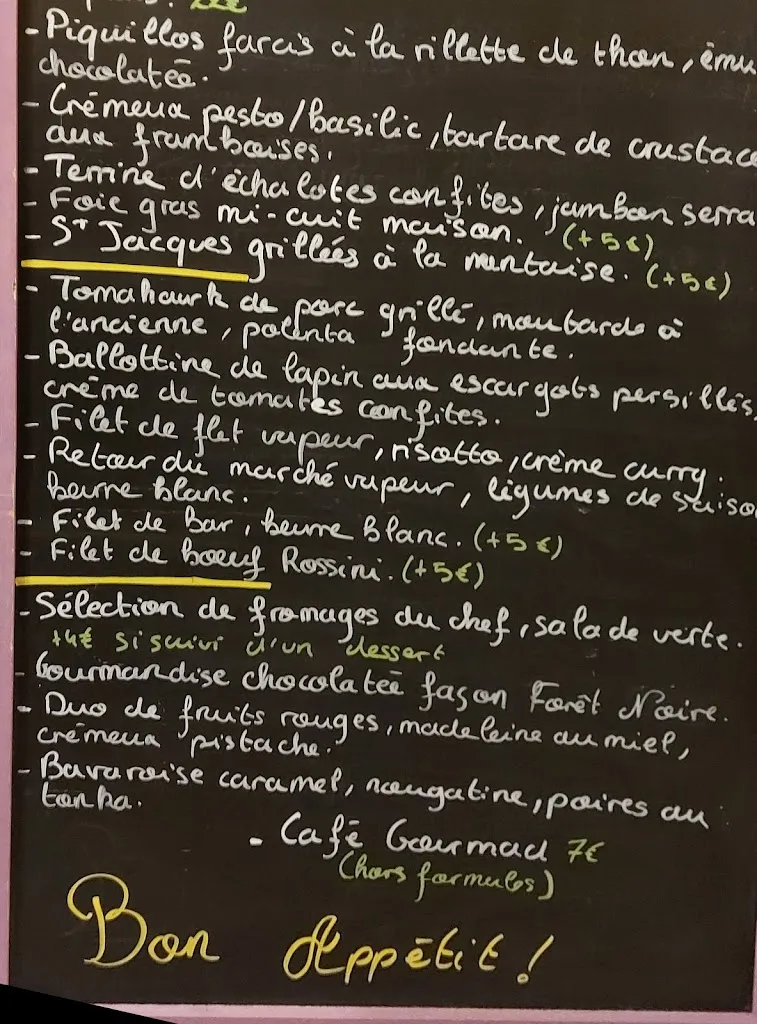 22€
- Piquillos farcis à la rillette de thon, ému
chocolatée.
- Crémeux pesto/basilic, tartare de crustacé
aux framboises.
- Terrine d'échalotes confites, jambon serra
- Foie gras mi-cuit maison. (+5€)
- St Jacques grillées à la nantaise. (+5€)
- Tomahawk de porc grillé, moutarde à
l'ancienne, polenta fondante.
- Ballottine de lapin aux escargots persillés,
crème de tomates confites.
- Filet de flet vapeur, risotto, crème curry.
- Retour du marché vapeur, légumes de saiso
beurre blanc.
- Filet de Bar, beurre blanc. (+5€)
- Filet de boeuf Rossini. (+5€)
- Sélection de fromages du chef, salade verte.
+4€ si suivi d'un dessert
- Gourmandise chocolatée façon Forêt Noire.
- Duo de fruits rouges, madeleine au miel,
crémeux pistache.
- Bavaroise caramel, nougatine, poires au
tonka.
- Café Gourmad 7€
(hors formules)
Bon Appétit!